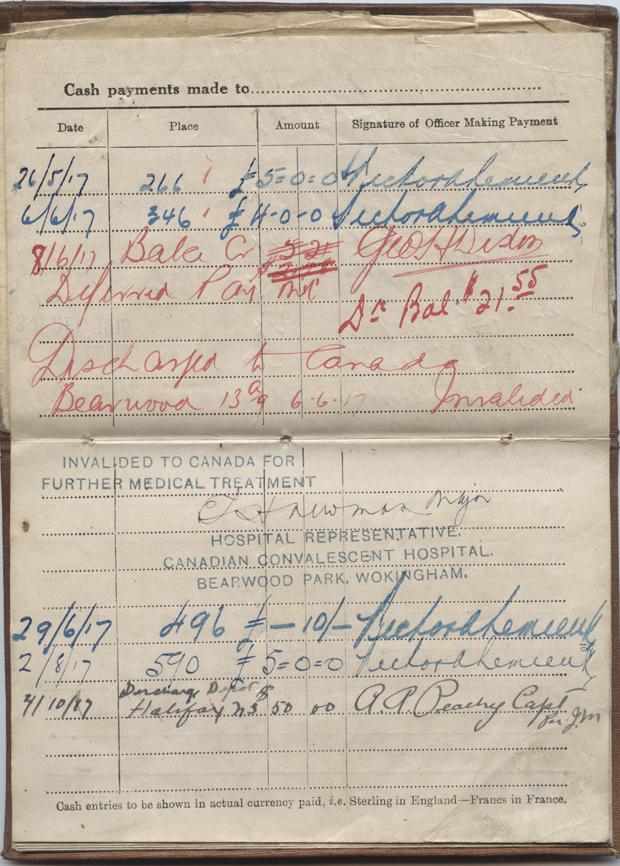 Cash payments made to
Date Place Amount Signature of Officer Making Payment
26/5/17 266 £5=0=0
6/6/17 346 £4-0-0
8/6/17 Balce Cr Geo H Dixon
Deferred Pay
Dr Bal $21.55
Discharged to Canada
Bearwood 6.6.17 Invalided
INVALIDED TO CANADA FOR
FURTHER MEDICAL TREATMENT
Major
HOSPITAL REPRESENTATIVE,
CANADIAN CONVALESCENT HOSPITAL,
BEARWOOD PARK, WOKINGHAM.
29/6/17 496 £-10/-
2/8/17 590 £5=0=0
Discharge Depot $
4/10/17 Halifax NS 50 00 A. P. Peachy Capt
Per. J.M
Cash entries to be shown in actual currency paid, i.e. Sterling in England—Francs in France.